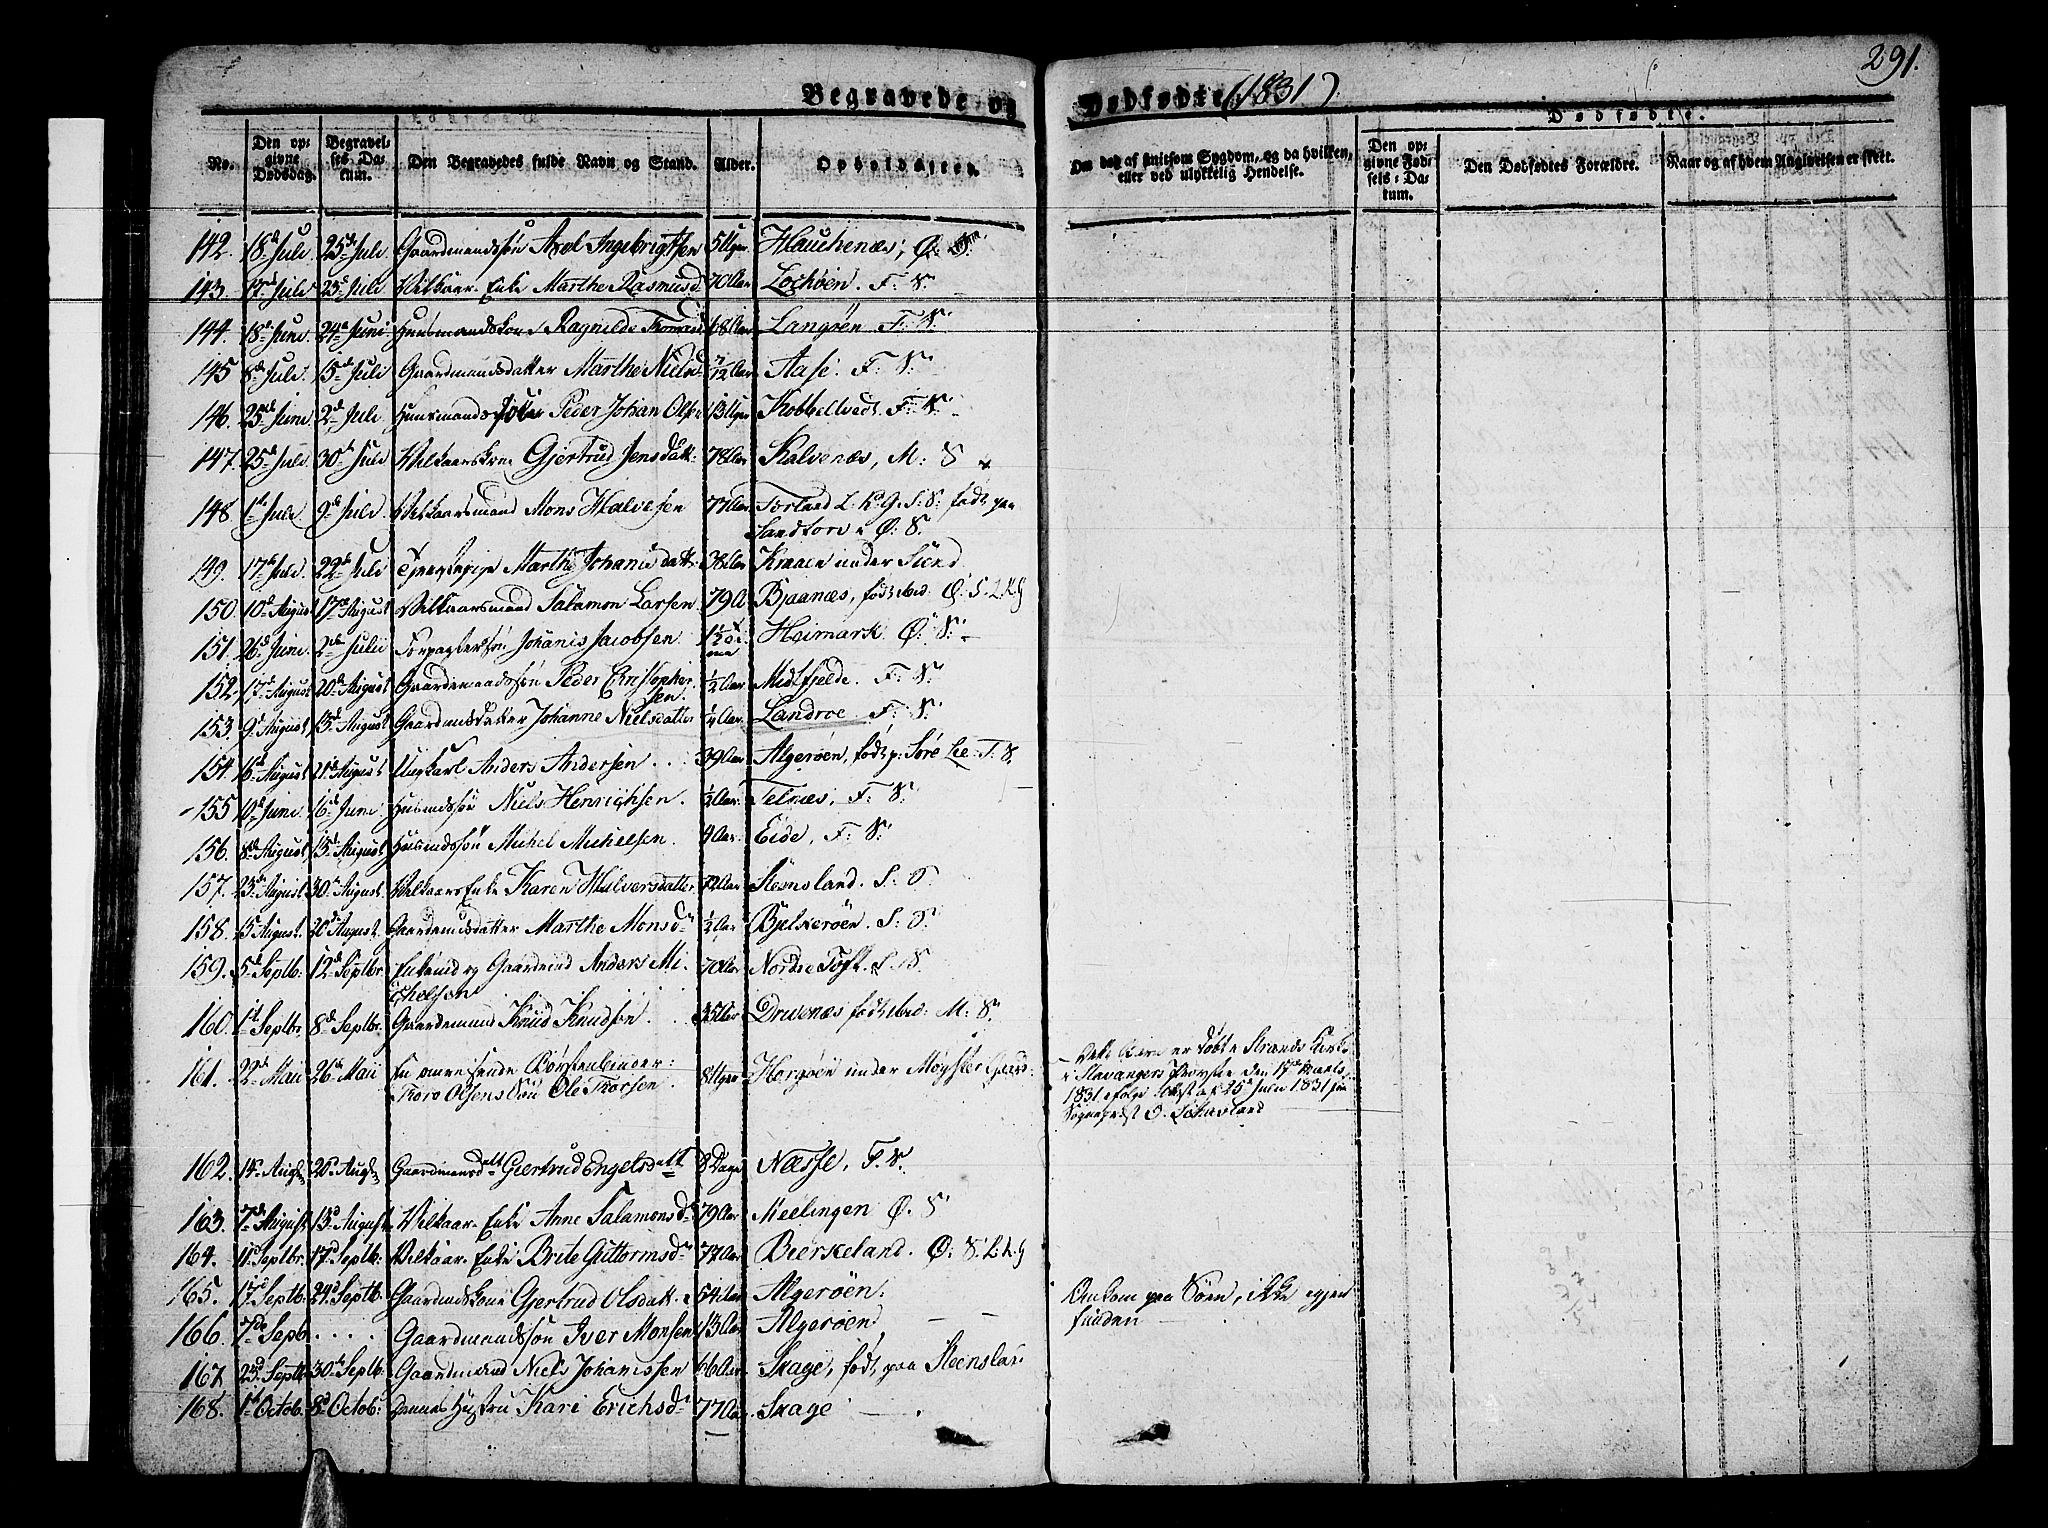 291.
Begravede og Dødfødte. (1831)
Dødfødte.
No. Den opgivne Dødsdag. Begravelses-Datum. Den Begravedes fulde Navn og Stand. Alder. Opholdssted. Om død af smitsom Sygdom, og da hvilken, eller ved ulykkelig Hendelse. Den opgivne Fødsels-Datum. Den Dødfødtes Forældre. Naar og af hvem Angivelsen er skeet.
142. 18de Juli 25de Juli Gaardmandssøn Axel Ingebrigtsen 5 Uger Hauchenæs, Ø. S.
143. 17de Juli 23de Juli Vilkaar. Enke Marthe Rasmusd 70 Aar Lochøen. F. S.
144. 18de Juni 24de Juni Huusmandskone Ragnilde 68 Aar Langøen F. S.
145 8de Juli 15de Juli Gaardmandsdatter Marthe Nielsd Aar Aase. F. S.
146. 25de Juni 2de Juli Huusmands Peder Johan Olsen 13 Uger Kobbeltvedt. F. S.
147. 25de Juli 30de Juli Vilkaarskone Gjertrud Jensdatt: 78 Aar Kalvenæs, M: S
148. 1te Juli 9de Juli Vilkaarsmand Mons Halvesen 77 Aar Torland L. K. G. S. S. født paa
Sandtorv Ø. S.
149. 17de Juli 22de Juli Tjenestepige Marthe Johanisdatt: 38 Aar Kraaen under Sund
150. 10de August 17de August Vilkaarsmand Salamon Larsen 79 A Bjaanæs, født ibid: Ø: S. L. K. G
151. 26de Juni 2de Julii Forpagtersøn Johanis Jacobsen 1½ Heimark. Ø. S.
152. 17de August 20de August Gaardemandssøn Peder Christopher-
sen. ½ Aar Midtfjelde. F. S.
153. 9de August 15de August Gaardmdsdatter Johanne Nielsdatter ¼ Aar. Landroe. F. S.
154. 16de August 21de August Ungkarl Anders Andersen 39 Aar Algerøen, født p: Søre F. S.
155 10de Juni 16de Juni Husmdssøn Niels Henrichsen. ½ Aar. Telnæs, F. S.
156. 8de August 15de August Husmdssøn Michel Michelsen. 4 Aar. Eide, F. S.
157. 23de August 30te August Vilkaars Enke Karen Halversdatter 72 Aar Steensland. S. S.
158. 15de August. 20de August. Gaardemdsdatter Marthe Monsdr ½ Aar Bjelkerøen. S: S.
159. 5de Septb: 12de Septbr. Enkemd og Gaardmd Anders Mi-
chelsen 70 Aar Nordre Toft. S. S.
160. 1te Septbr 8de Septbr. Gaardemand Knud Knudsen. 35 Aar Drivenæs født ibid: M: S.
161. 22de Maii 26de Maii En omreisende Børstenbinder: 8 Uger Horgøen under Møgster Gaard
Thore Olsens Søn Ole Thorsen.
Dette Barn er døbt i Strands Kirke
i Stavangers Provstie den 17de Marts
1831 ifølge Attest af 25de Juli 1831 fra
Sognepræst
162. 14de Augt. 20de Augt. Gaardmansdatt Giertrud Engelsdatt 8 Dage Næsse, F. S.
163. 7de August 13de August Vilkaar. Enke Anne Salamonsdr 79 Aar Meelingen Ø. S
164. 11te Septbr. 17de Septb: Vilkaar. Enke Brite Guttormsdr 77 Aar Bierkeland. Ø. S. L. K. G
165. 17de Septb. 24de Septb. Gaardmdskone Gjertrud Olsdatt. 54 Aar Algerøen.
166. 7de Septb. . . . . Gaardmandssøn Iver Monsen 13 Aar Algerøen — —
Omkom paa Søen, ikke igjen
funden
167 23de Septb 30te Septb: Gaardmand Niels Johanissen 66 Aar. Skage, født paa Steensland
168. 1te Octob. 8de Octob: Dennes Hustru Kari Erichsdr 77 Aar. Skage — .